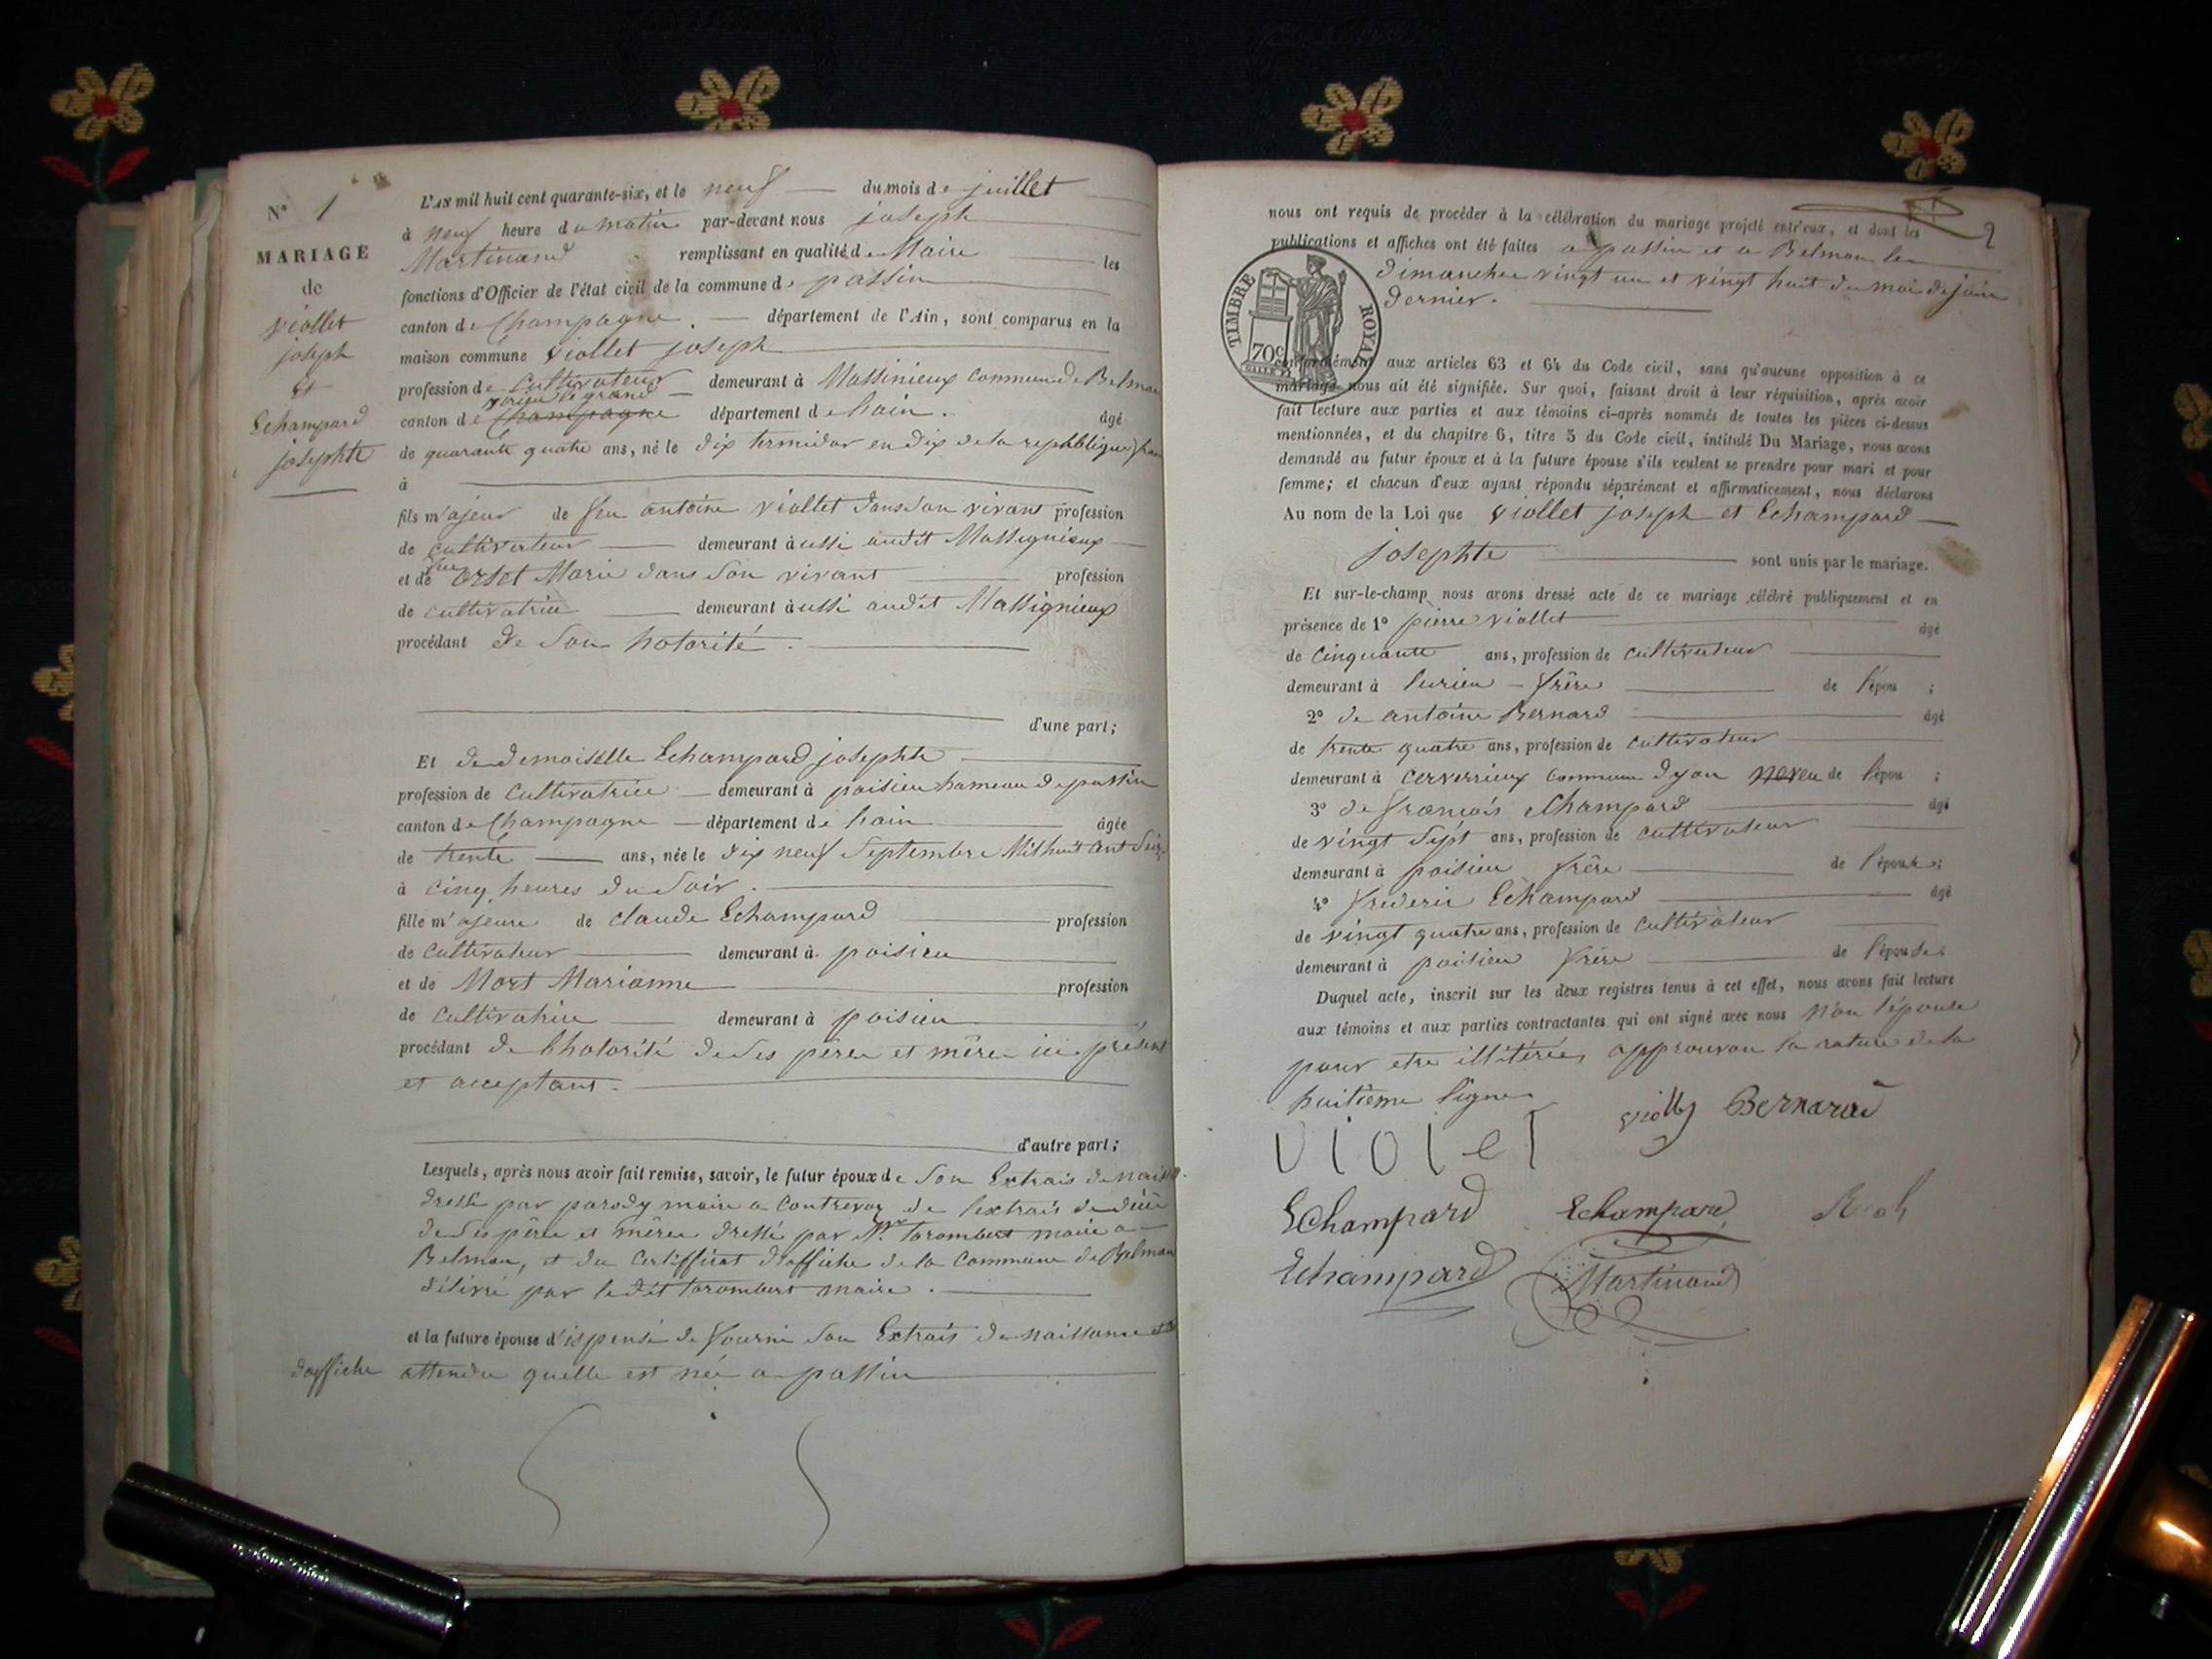 N° 1
MARIAGE
de
viollet
joseph
et
Echampard
josephte
L'AN mil huit cent quarante-six, et le neuf du mois de juillet
à neuf heure du matin par-devant nous joseph
Martinand remplissant en qualité de Maire les
fonctions d'Officier de l'état civil de la commune de passin
canton de Champagne département de l'Ain, sont comparus en la
maison commune viollet joseph
profession de cultivateur demeurant à Massinieux commune de Belmon
virieu le grand
canton de Champagne département de hain. âgé
de quarante quatre ans, né le dix termidor en dix de la republique
à
fils majeur de feu antoine viollet dans son vivant profession
de cultivateur demeurant à ussi audit Massignieux
et de feu orset Marie dans son vivant profession
de cultivatrice demeurant à ussi audit Massignieux
procédant de son hotorité.
d'une part;
Et de demoiselle Echampard josephte
profession de cultivatrice demeurant à poisieu hameau de passin
canton de Champagne département de hain âgée
de trente ans, née le dix neuf Septembre Mil huit cent seize
à cinq heures du soir.
fille majeure de claude Echampard profession
de cultivateur demeurant à poisieu
et de Mort Marianne profession
de cultivatrice demeurant à poisieu
procédant de lhotorité de ses père et mère ici présent
et acceptans.
d'autre part;
Lesquels, après nous avoir fait remise, savoir, le futur époux de son Extrais de naiss
dressé par parody maire a Contrevoz de lextrais de décè
de ses père et mère dressé par Mr tarombert maire a
Belmon, et du certifficat daffiche de la commune de Belmon
délivré par ledit tarombert maire.
et la future épouse dispensé de fournir son Extrais de naissance et
daffiche attendu quelle est née a passin
2
nous ont requis de procéder à la célébration du mariage projeté entr'eux, et dont les
publications et affiches ont été faites a passin et a Belmon les
dimanche vingt un et vingt huit du moi de juin
dernier.
TIMBRE ROYAL
70c
conformément aux articles 63 et 64 du Code civil, sans qu'aucune opposition à ce
mariage nous ait été signifiée. Sur quoi, faisant droit à leur réquisition, après avoir
fait lecture aux parties et aux témoins ci-après nommés de toutes les pièces ci-dessus
mentionnées, et du chapitre 6, titre 5 du Code civil, intitulé Du Mariage, nous avons
demandé au futur époux et à la future épouse s'ils veulent se prendre pour mari et pour
femme; et chacun d'eux ayant répondu séparément et affirmativement, nous déclarons
Au nom de la Loi que viollet joseph et Echampard
josephte sont unis par le mariage.
Et sur-le-champ nous avons dressé acte de ce mariage célébré publiquement et en
présence de 1° pierre viollet âgé
de cinquante ans, profession de cultivateur
demeurant à frère de l'épou ;
2° de antoine Bernard âgé
de trente quatre ans, profession de cultivateur
demeurant à cerverrieux commune dyon neveu de l'épou ;
3° de françois Echampard âgé
de vingt sept ans, profession de cultivateur
demeurant à poisieu frère de l'épouse;
4° frederic Echampard âgé
de vingt quatre ans, profession de cultivateur
demeurant à poisieu frère de l'épouse
Duquel acte, inscrit sur les deux registres tenus à cet effet, nous avons fait lecture
aux témoins et aux parties contractantes qui ont signé avec nous non lépouse
pour etre illitérée, approuvon la rature de la
huitieme ligne
Bernard
violet
Echampard Echampard
Echampard Martinand